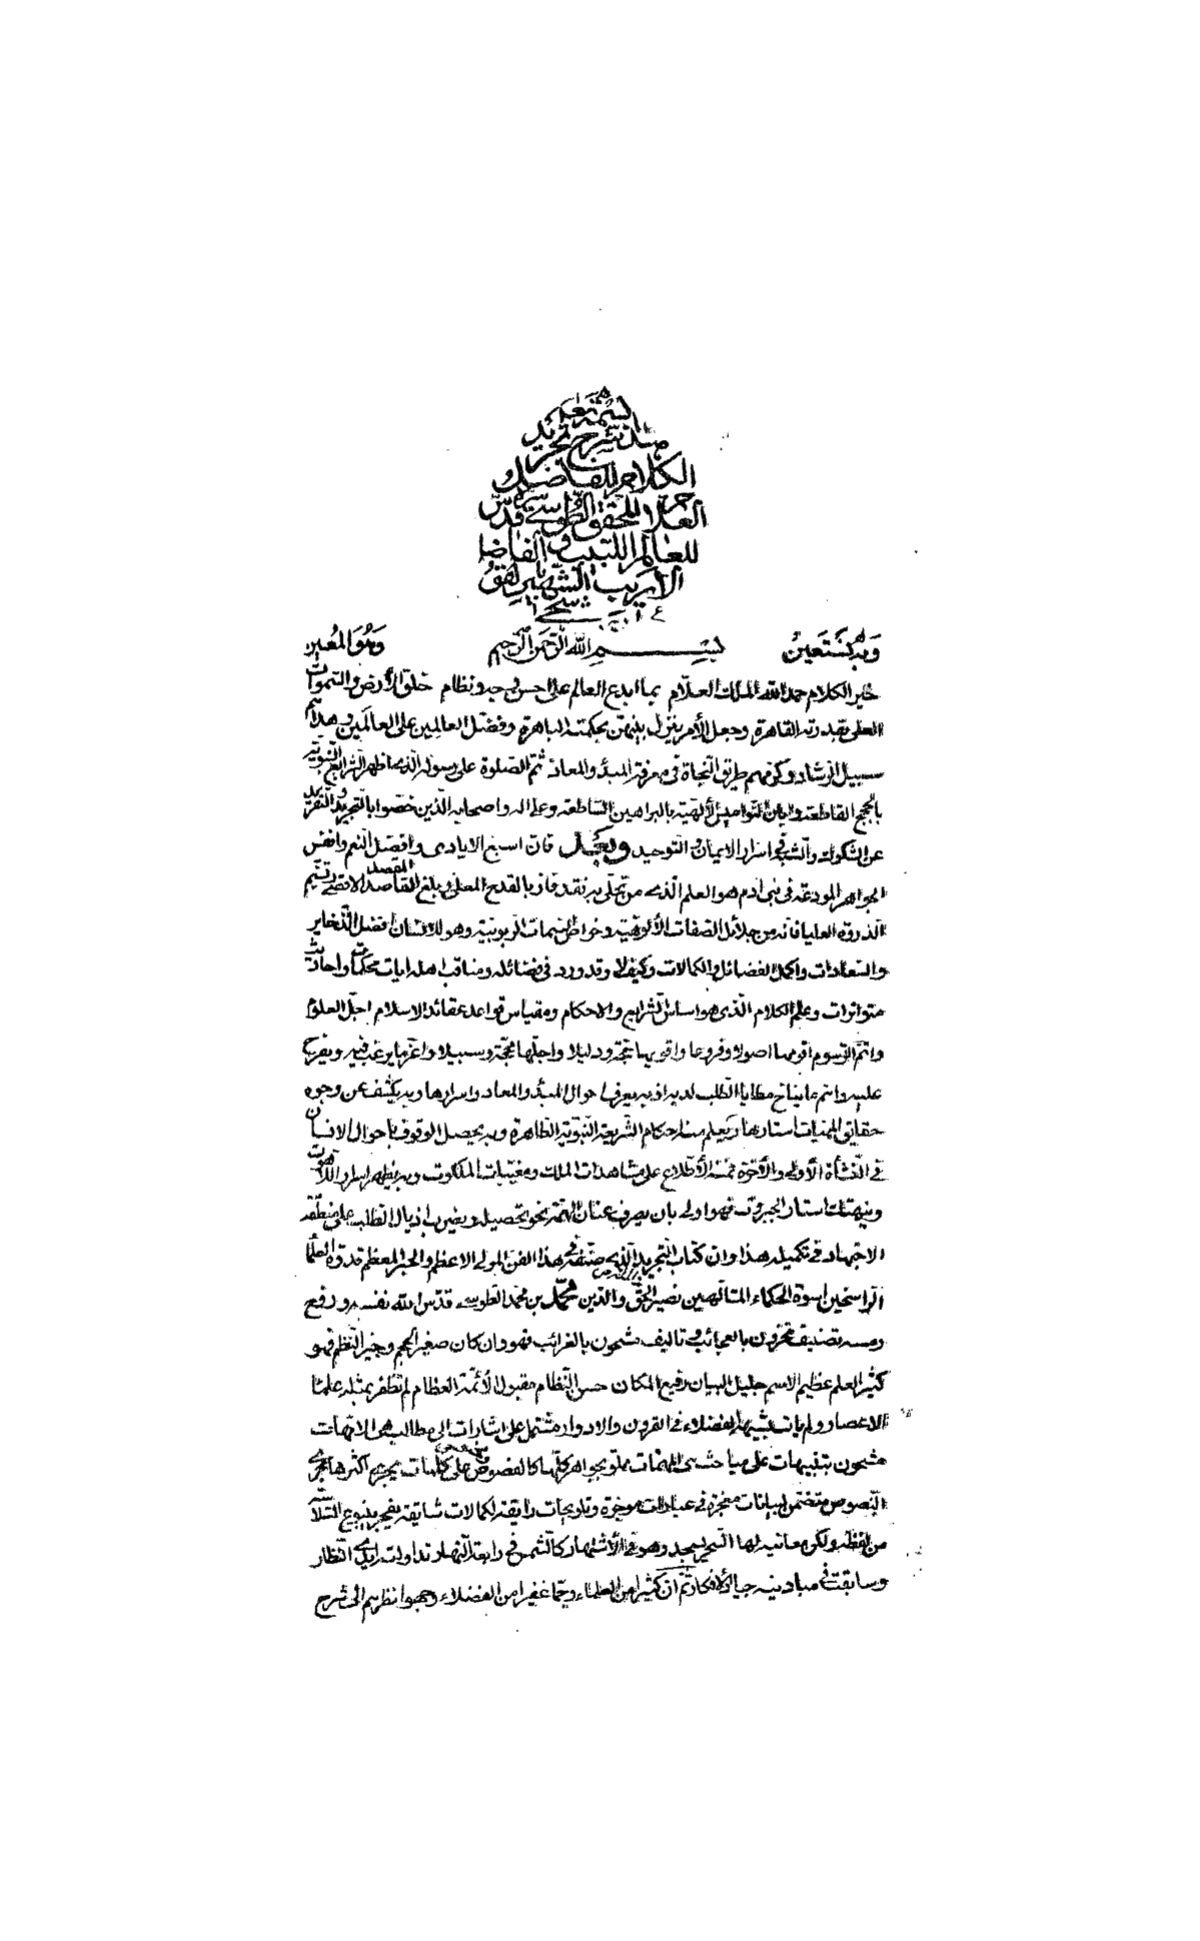 هذا شرح تجريد
الكلام للفاضل
العلام المحقق الطوسي قدس سره
للعالم اللبيب والفاضل
الأريب الشهير بالقو
شجي
وبه نستعين بسم الله الرحمن الرحيم وهو المعين
خير الكلام حمد الله الملك العلام بما ابدع العالم على احسن وجه ونظام خلق الأرض والسموات
العلى بقدرته القاهرة وجعل الأمر يتنزل بينهن بحكمته الباهرة وفضل العالمين على العالمين وهداهم
سبيل الرشاد وكفهم طريق النجاة في معرفة المبدأ والمعاد ثم الصلوة على رسوله الذي اظهر الشرايع النبوية
بالحجج القاطعة وابان النواميس الألهية بالبراهين الساطعة وعلى اله واصحابه الذين خصوا بالتجريد والتفريد
عن الشكوك والشبه في اسرار الايمان والتوحيد وبعد فان اسبغ الايادي وافضل النعم وانفس
الجواهر المودعة في بني ادم هو العلم الذي من تحلى به فقد فاز بالقدح المعلى وبلغ المقصد الاقصى وتسنم
الذروة العليا فانه من جلائل الصفات الألوهية وخواص سمات الربوبية وهو للانسان افضل الذخاير
والسعادات واكمل الفضائل والكمالات وكيف لا وقد ورد في فضائله ومناقب اهله ايات محكمات واحاديث
متواترات وعلم الكلام الذي هو اساس الشرايع والاحكام ومقياس قواعد عقائد الاسلام اجل العلوم
واتم الرسوم اقومها اصولا وفروعا واقويها حجة ودليلا واجلها محجة وسبيلا واعز ما يرغب فيه ويعرج
عليه واهم ما يناخ مطايا الطلب لديه اذ به يعرف احوال المبدأ والمعاد واسرارها وبه يكشف عن وجوه
حقايق الهيات استارها ويعلم منه احكام الشريعة النبوية الطاهرة وبه يحصل الوقوف باحوال الانسان
في النشأة الأولى والأخرة ثمة الأطلاع على مشاهدات الملك ومغيبات الملكوت وبه يظهر اسرار اللاهوت
وينهتك استار الجبروت فهو اولى بان يصرف عنان الهمة نحو تحصيله ويضرب اذيال الطلب على منطقة
الاجتهاد في تكميله هذا وان كتاب التجريد الذي صنفه في هذا الفن المولى الاعظم والحبر المعظم قدوة العلماء
الراسخين اسوة الحكماء المتألهين نصير الحق والدين محمد بن محمد الطوسي قدس الله نفسه ورفع
رمسه تصنيف مخزون بالعجائب وتاليف مشحون بالغرائب فهو وان كان صغير الحجم وجيز النظم فهو
كثير العلم عظيم الاسم جليل البيان رفيع المكان حسن النظام مقبول الأئمة العظام لم تظفر بمثله علماء
الاعصار ولم يأت بشبهه الفضلاء في القرون والادوار مشتمل على اشارات الى مطالب هي الامهات
مشحون بتنبيهات على مباحث هي المهمات مملو بجواهر كلها كالفصوص محتو على كلمات يجري اكثرها مجرى
النصوص متضمن لبيانات معجزة في عبارات موجزة وتلويحات رايقة لكمالات شايقة يفجر ينبوع السلاسة
من لفظه ولكن معانيه لها السحر يسجد وهو في الأشتهار كالشمس في رابعة النهار تداولته ايدي النظار
وسابقت في ميادينه جياد الافكار ثم ان كثيرا من العلماء وجما غفيرا من الفضلاء وجهوا نظرهم الى شرح